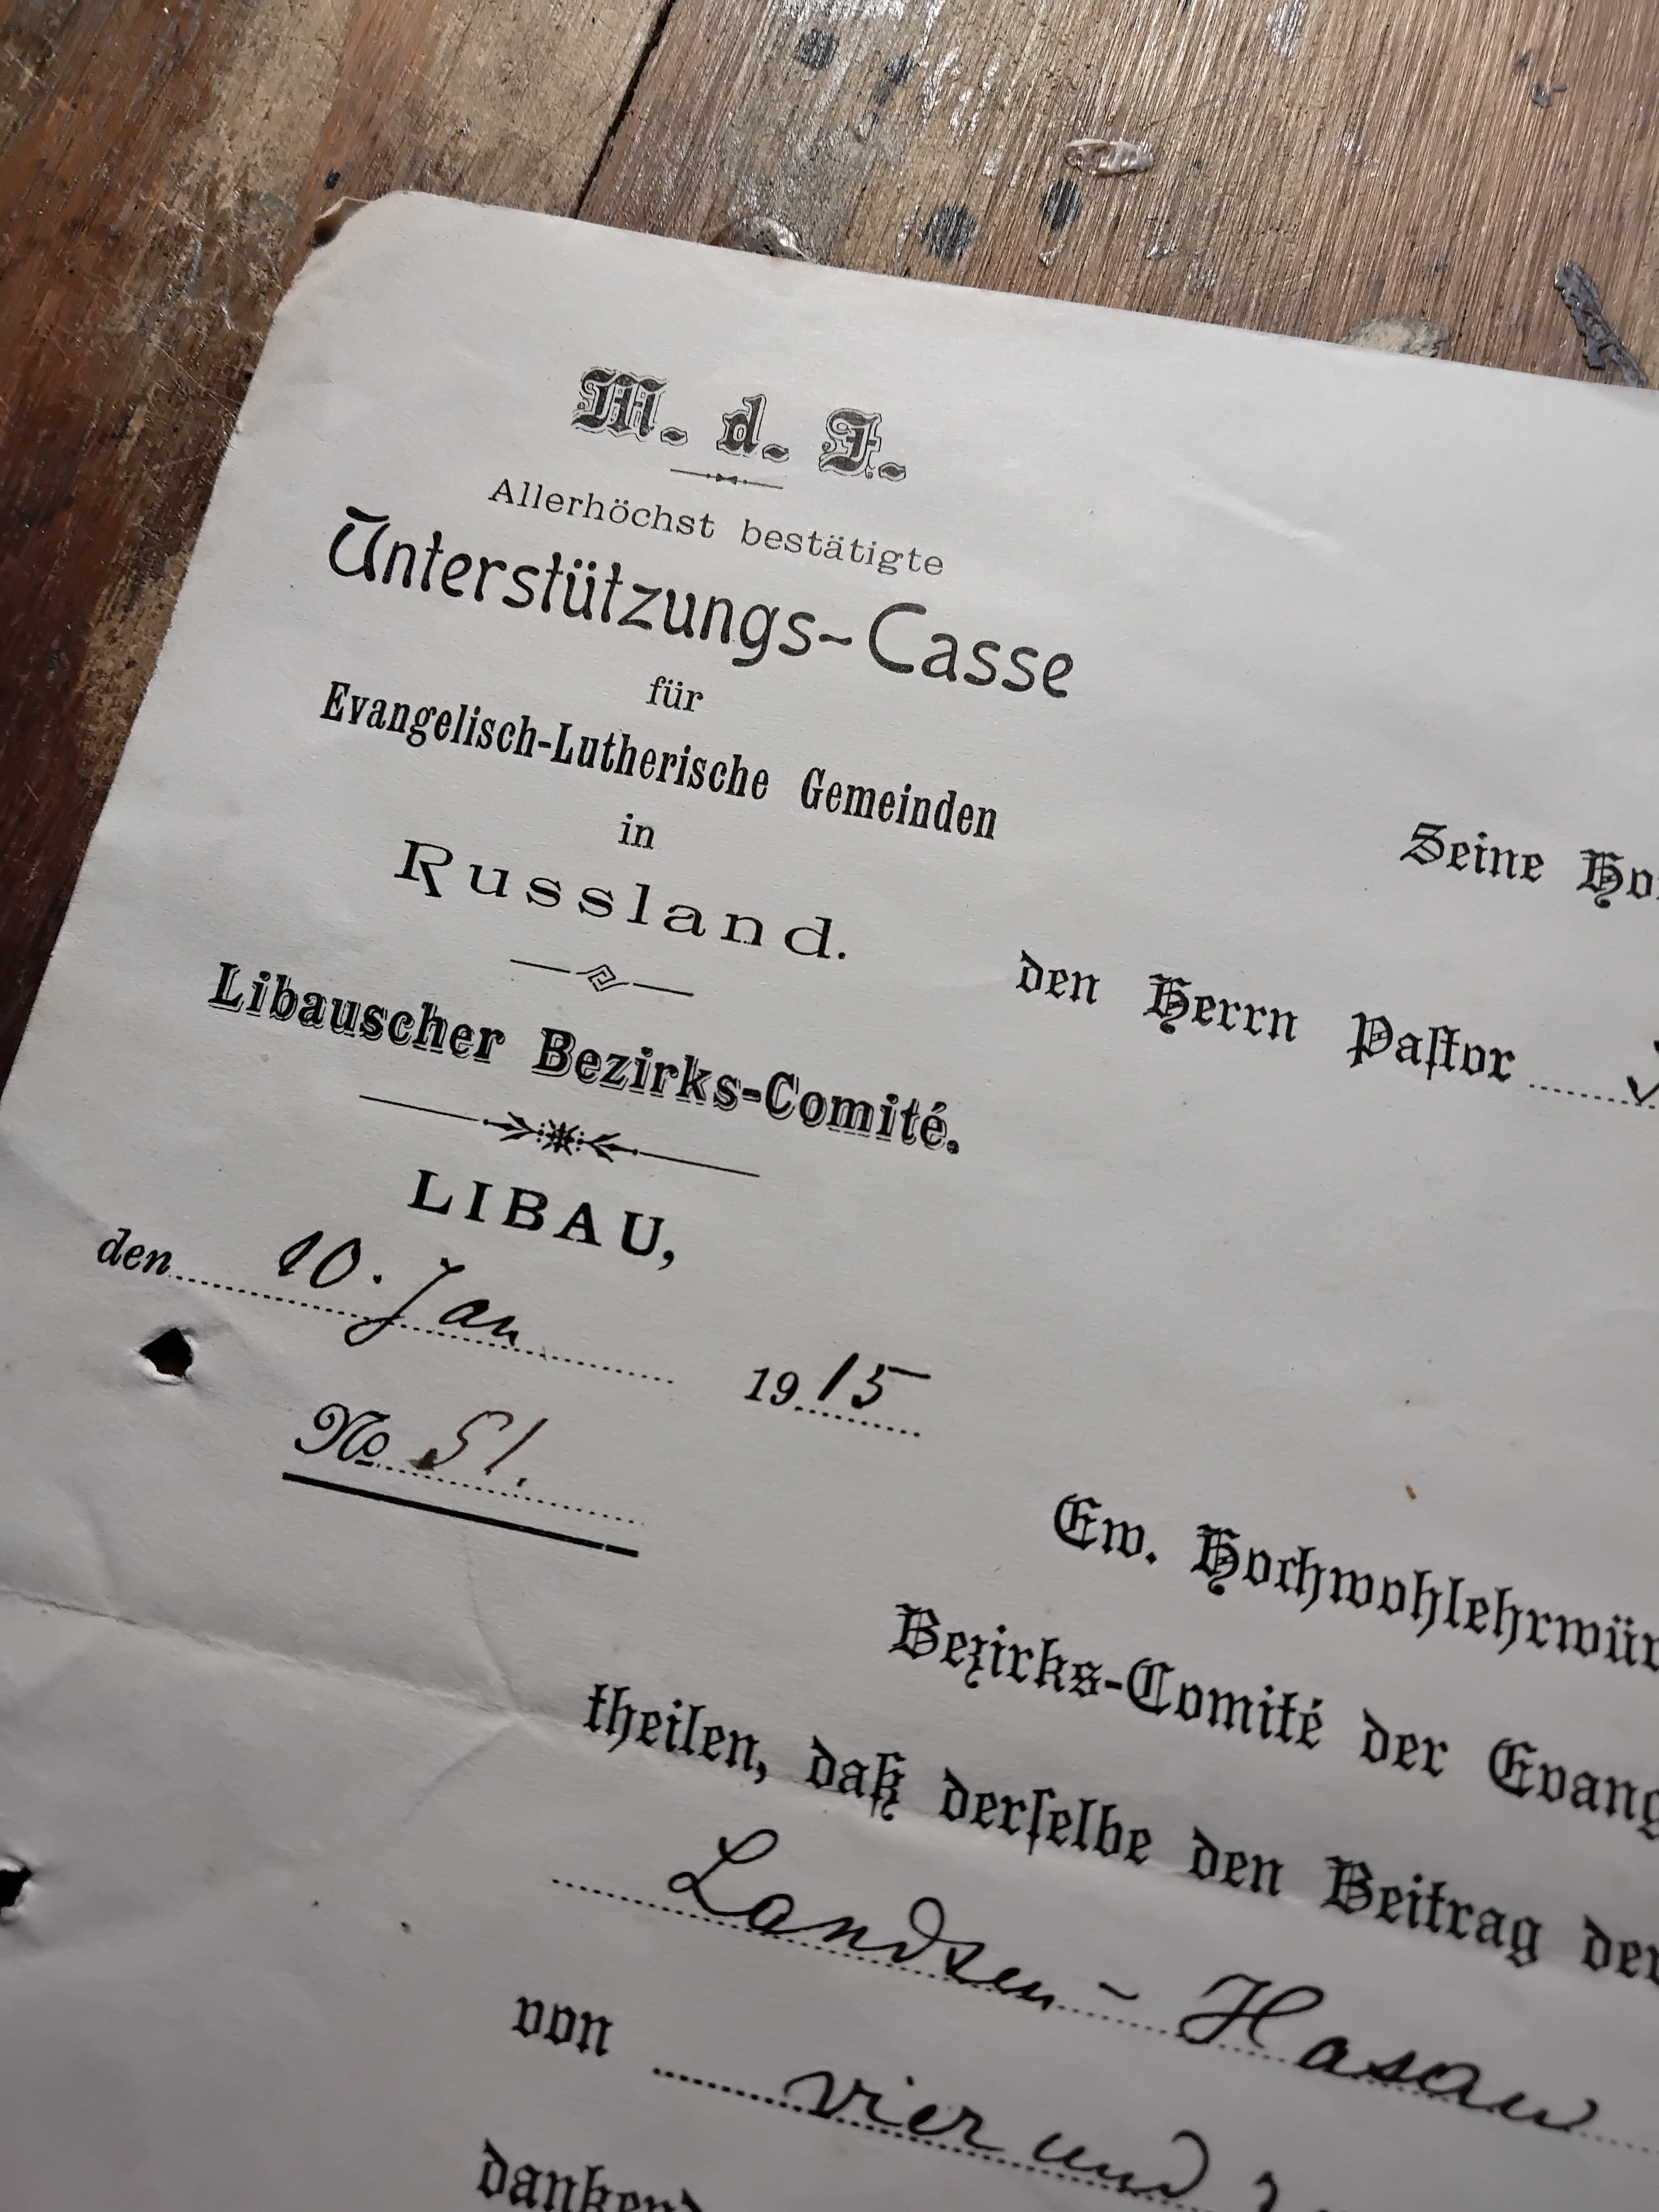 M. d. I.
Allerhöchst bestätigte
Unterstützungs-Casse
für
Evangelisch-Lutherische Gemeinden
in
Russland.
Libauscher Bezirks-Comité.
LIBAU,
den 10. Jan 1915
No 51.
Seine Ho
den Herrn Paſtor
Ew. Hochwohlehrwür
Bezirks-Comité der Evang
theilen, daß derſelbe den Beitrag der
Landsen - Hasau
von vier und
dankend